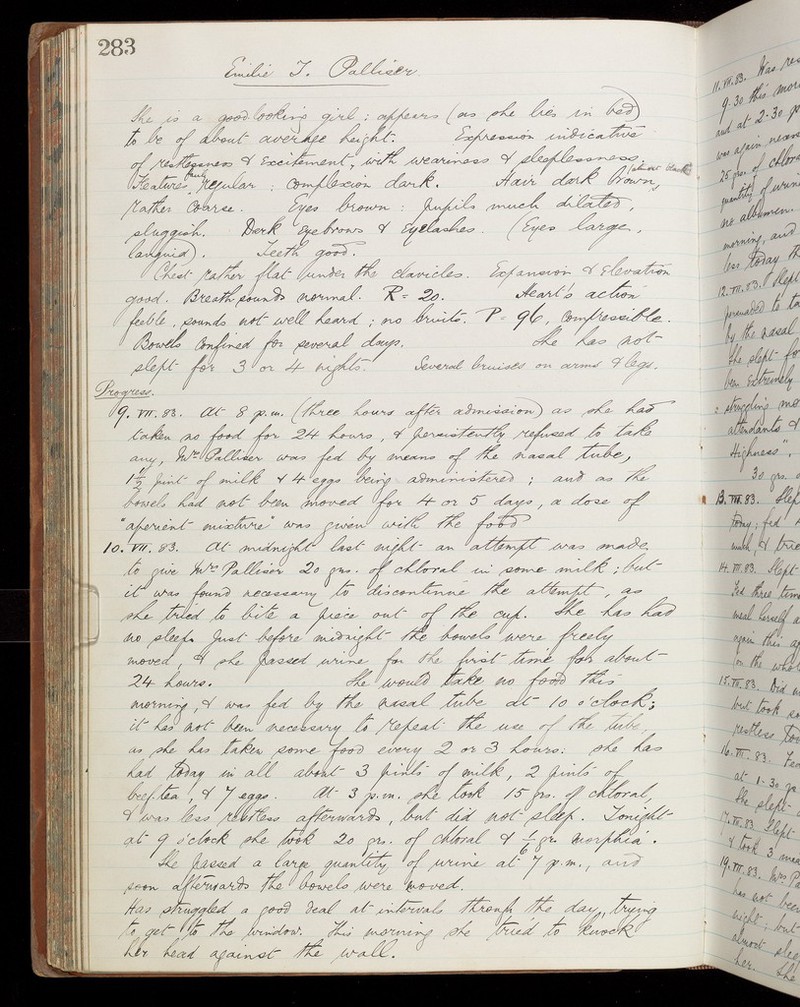 283
Emilie T. Palliser
She is a good-looking girl : appears (as she lies in bed)
to be of about average height. Expression indicative
of restlessness & Excitement, with weariness & sleeplessness.
Features fairly regular : complexion dark. Hair dark Brown, (almost black)
rather Coarse. Eyes brown : pupils much dilated,
sluggish. Dark Eyebrows & Eyelashes. (Eyes large,
languid). Teeth good.
Chest rather flat under the clavicles. Expansion & Elevation
good. Breath-sounds normal. R = 20. Heart's action
feeble, sounds not well heard ; no bruits. P = 96, compressible.
Bowels Confined for several days. She has not
slept for 3 or 4 nights. Several bruises on arms & legs.
Progress.
9. VII. 83. At 8 p.m. (three hours after admission) as she had
taken no food for 24 hours, & persistently refused to take
any, Mrs. Palliser was fed by means of the nasal tube,
1½ pint of milk & 4 eggs being administered ; and as the
bowels had not been moved for 4 or 5 days, a dose of
"aperient mixture" was given with the food.
10. VII. 83. At midnight last night an attempt was made
to give Mrs Palliser 20 grs. of chloral in some milk ; but
it was found necessary to discontinue the attempt, as
she tried to bite a piece out of the cup. She has had
no sleep. Just before midnight the bowels were freely
moved, & she passed urine for the first time for about
24 hours. She would take no food this
morning, & was fed by the nasal tube at 10 o'clock ;
it has not been necessary to repeat the use of the tube,
as she has taken some food every 2 or 3 hours : she has
had today in all about 3 pints of milk, 2 pints of
beef-tea, & 7 eggs. At 3 p.m. she took 15 grs. of chloral,
& was less restless afterwards, but did not sleep. Tonight
at 9 o'clock she took 20 grs. of chloral & 1/6 gr. morphia.
She passed a large quantity of urine at 7 p.m., and
soon afterwards the bowels were moved.
Has struggled a good deal at intervals through the day, trying
to get to the window. This morning she tried to knock
her head against the wall.
11. VII. 83. Has
9.30 this
and at 2.30
was again
25 grs. of
quantity of
no albumen.
morning, and
less today
12. VII. 83. Slept
persuaded to
by the nasal
She slept for
been Extremely
struggling
attendants &
Highness",
30 grs.
13. VII. 83.
today ; fed
much, &
14. VII. 83. Slept
Fed three
meal herself
again this
on the whole
15. VII. 83. Did
but took
restless
16. VII. 83.
at 1.30
She slept
17. VII. 83. Slept
& took 3
19. VII. 83. Mrs
has not been
night ; but
almost
her. She